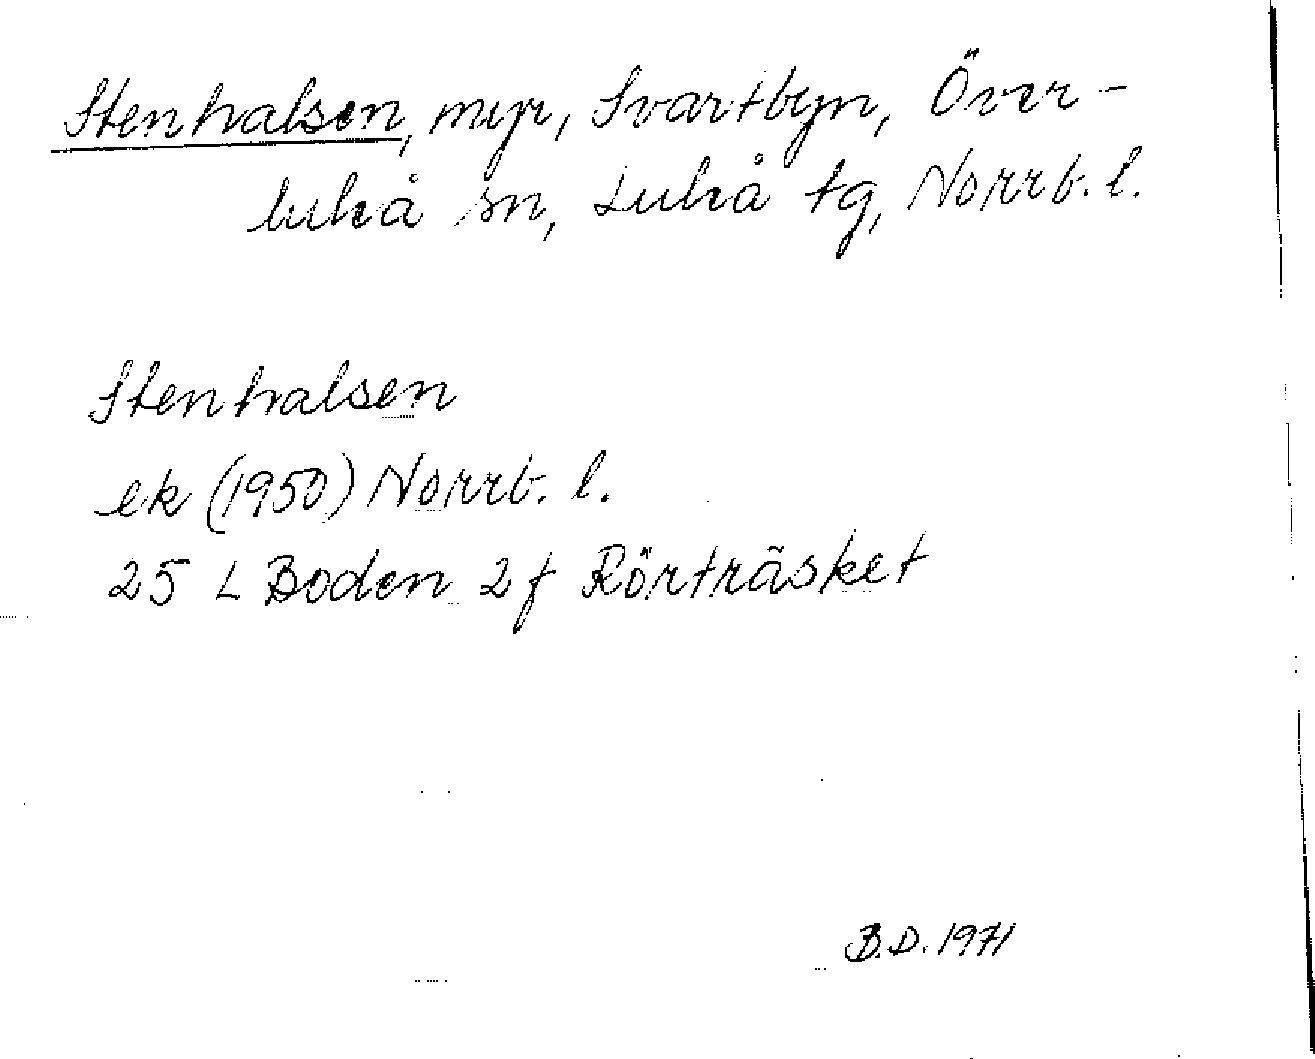 Stenhalsen, myr, Svartbyn, Över-
luleå sn, Luleå tg, Norrb. l.
Stenhalsen
ek (1950) Norrb. l.
25 L Boden 2f Rörträsket
B.D. 1971